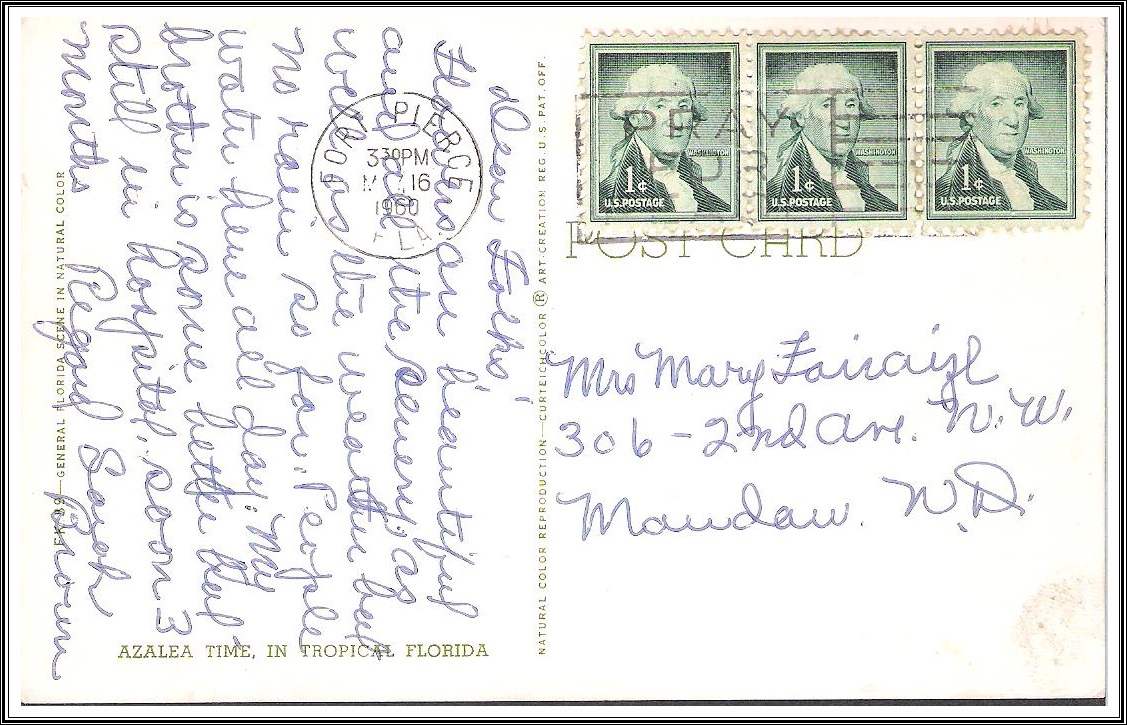 Dear Folks,
Flowers are beautiful
and all the scenery as
well as the weather but
No rain so far. People
water here all day. My
brother is some better but
still in hospital. soon 3
months Regard Sarah
Brown
FORT PIERCE
330PM
16
1960
FLA
PRAY
FOR
1¢
U.S. POSTAGE
WASHINGTON
1¢
U.S. POSTAGE
WASHINGTON
1¢
U.S. POSTAGE
WASHINGTON
POST CARD
Mrs Mary
306 - 2nd Ave. N.W.
Mandan. N.D.
NATURAL COLOR REPRODUCTION—CURTEICHCOLOR ® ART-CREATION REG. U.S. PAT. OFF.
89—GENERAL FLORIDA SCENE IN NATURAL COLOR
AZALEA TIME, IN TROPICAL FLORIDA